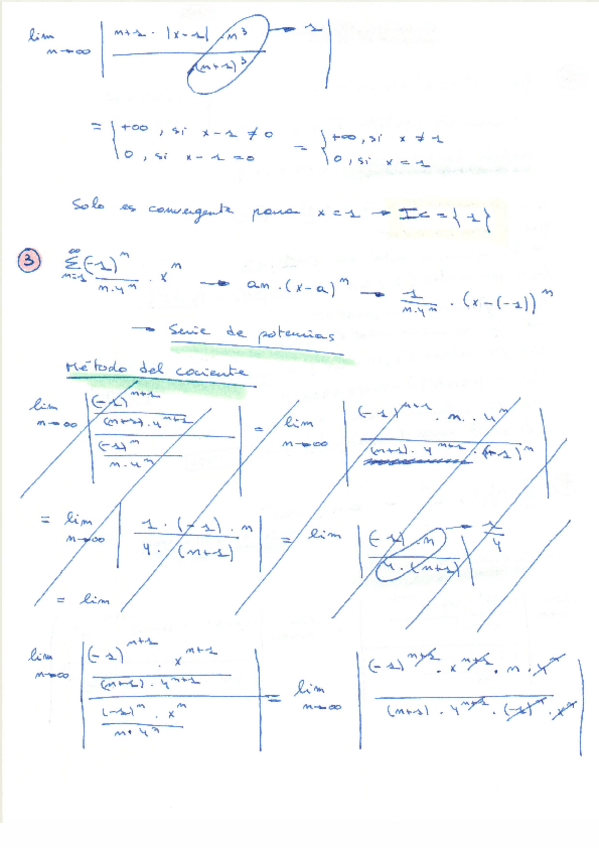 lim n→∞ | (n+1 · |x-1| · n³) / (n+1)³ | → 1
= { +∞, si x-1 ≠ 0 = { +∞, si x ≠ 1
0, si x-1 = 0 0, si x = 1
Solo es convergente para x = 1 → Ic = { 1 }
3 ∞ Σ n=1 (-1)ⁿ / (n·4ⁿ) · xⁿ → an · (x-a)ⁿ → 1 / (n·4ⁿ) · (x-(-1))ⁿ
→ Serie de potencias
Método del cociente
lim n→∞ | ((-1)ⁿ⁺¹ / ((n+1)·4ⁿ⁺¹)) / ((-1)ⁿ / (n·4ⁿ)) | = lim n→∞ | ((-1)ⁿ⁺¹ · n · 4ⁿ) / ((n+1) · 4ⁿ⁺¹ · (-1)ⁿ) |
= lim n→∞ | (1 · (-1) · n) / (4 · (n+1)) | = lim | ((-1) · n) / (4 · (n+1)) | → 1/4
= lim
lim n→∞ | ((-1)ⁿ⁺¹ · xⁿ⁺¹ / ((n+1) · 4ⁿ⁺¹)) / ((-1)ⁿ · xⁿ / (n·4ⁿ)) | = lim n→∞ | ((-1)ⁿ⁺¹ · xⁿ⁺¹ · n · 4ⁿ) / ((n+1) · 4ⁿ⁺¹ · (-1)ⁿ · xⁿ) |